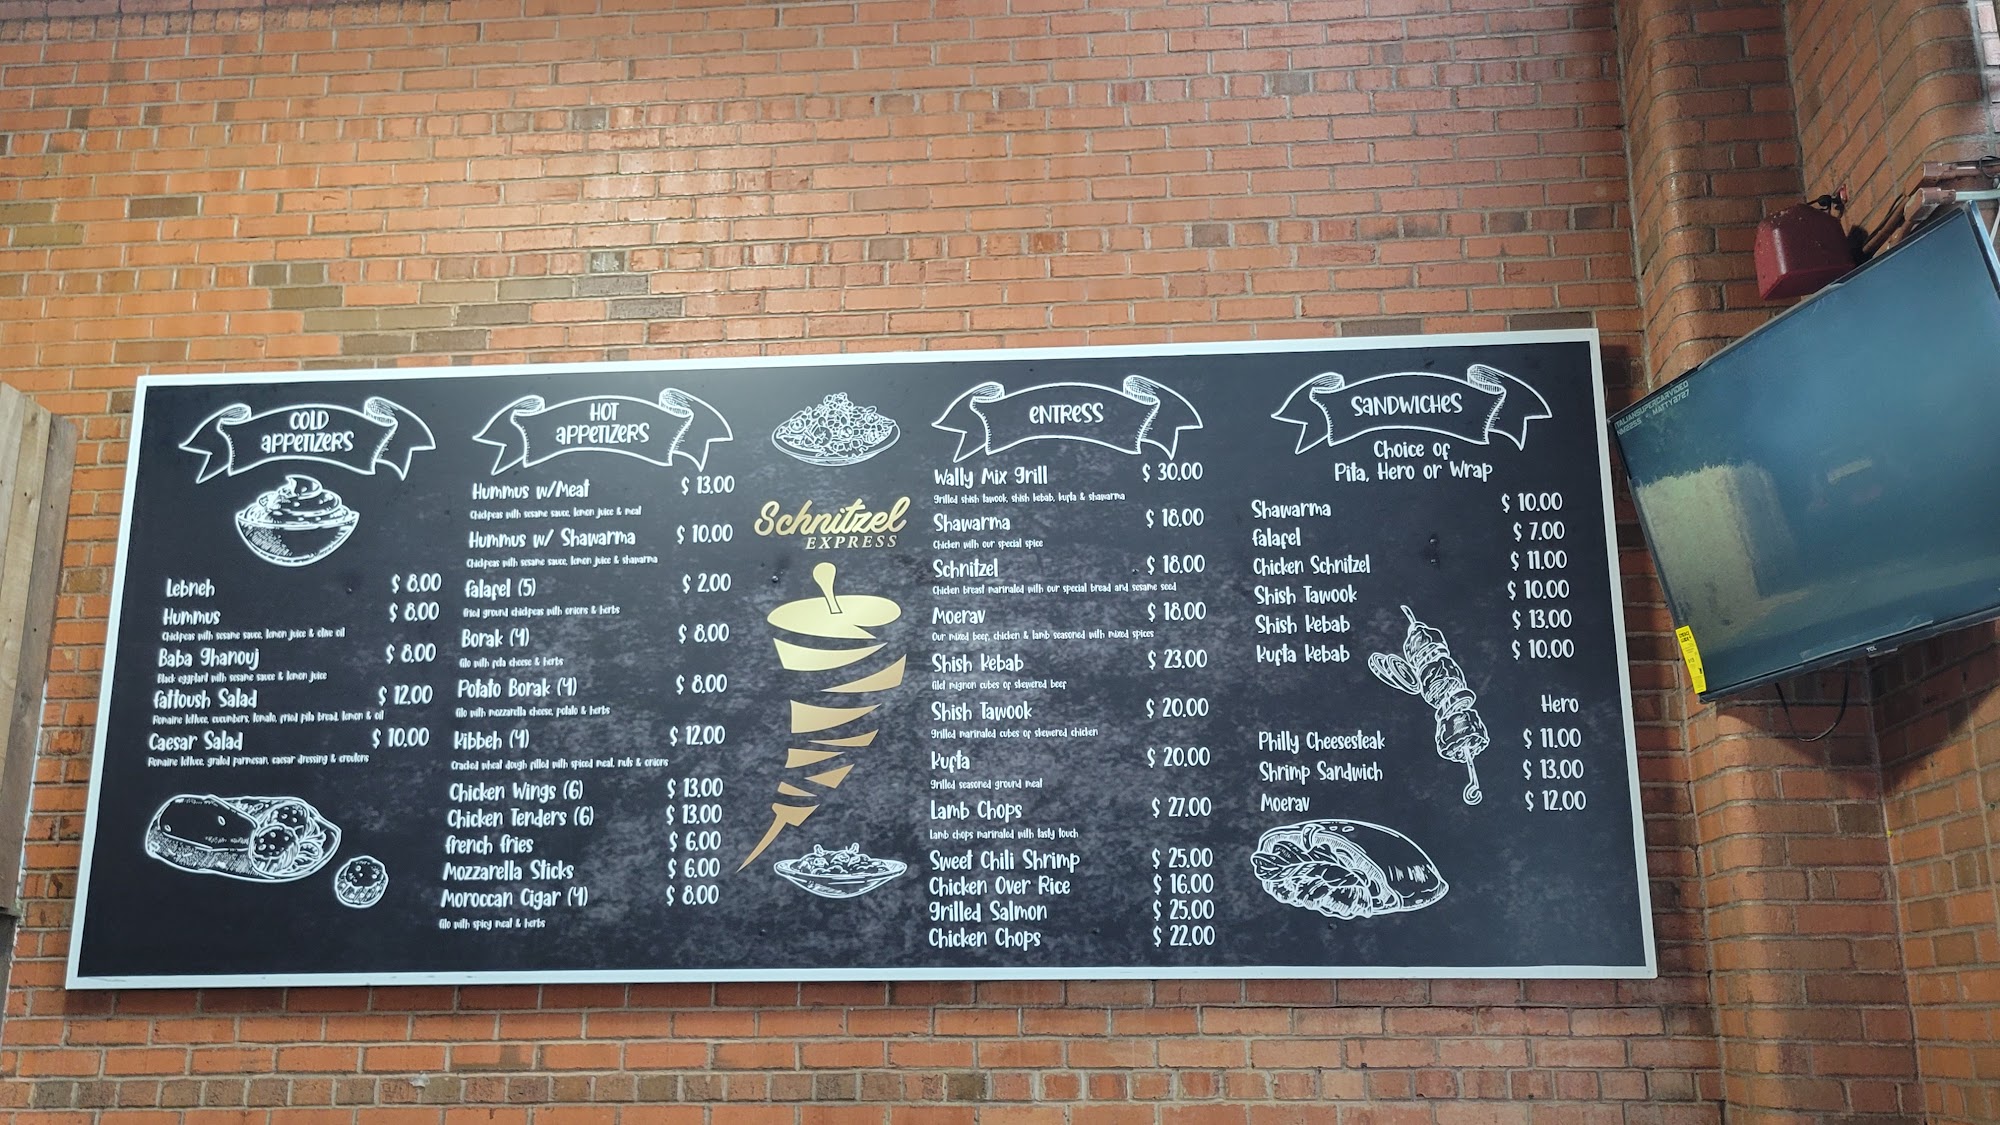 COLD
APPETIZERS
Lebneh $ 8.00
Hummus $ 8.00
Chickpeas with sesame sauce, lemon juice & olive oil
Baba Ghanouj $ 8.00
Black eggplant with sesame sauce & lemon juice
Fattoush Salad $ 12.00
Romaine lettuce, cucumbers, tomato, fried pita bread, lemon & oil
Caesar Salad $ 10.00
Romaine lettuce, grated parmesan, caesar dressing & croutons
HOT
APPETIZERS
Hummus w/Meat $ 13.00
Chickpeas with sesame sauce, lemon juice & meat
Hummus w/ Shawarma $ 10.00
Chickpeas with sesame sauce, lemon juice & shawarma
Falafel (5) $ 2.00
Fried ground chickpeas with onions & herbs
Borak (4) $ 8.00
filo with feta cheese & herbs
Potato Borak (4) $ 8.00
filo with mozzarella cheese, potato & herbs
Kibbeh (4) $ 12.00
Cracked wheat dough filled with spiced meat, nuts & onions
Chicken Wings (6) $ 13.00
Chicken Tenders (6) $ 13.00
French Fries $ 6.00
Mozzarella Sticks $ 6.00
Moroccan Cigar (4) $ 8.00
filo with spicy meat & herbs
Schnitzel
EXPRESS
ENTRESS
Wally Mix Grill $ 30.00
Grilled shish tawook, shish kebab, kufta & shawarma
Shawarma $ 18.00
Chicken with our special spice
Schnitzel $ 18.00
Chicken breast marinated with our special bread and sesame seed
Moerav $ 18.00
Our mixed beef, chicken & lamb seasoned with mixed spices
Shish Kebab $ 23.00
filet mignon cubes of skewered beef
Shish Tawook $ 20.00
Grilled marinated cubes of skewered chicken
Kufta $ 20.00
Grilled seasoned ground meat
Lamb Chops $ 27.00
Lamb chops marinated with tasty touch
Sweet Chili Shrimp $ 25.00
Chicken Over Rice $ 16.00
Grilled Salmon $ 25.00
Chicken Chops $ 22.00
SANDWICHES
Choice of
Pita, Hero or Wrap
Shawarma $ 10.00
Falafel $ 7.00
Chicken Schnitzel $ 11.00
Shish Tawook $ 10.00
Shish Kebab $ 13.00
Kufta Kebab $ 10.00
Hero
Philly Cheesesteak $ 11.00
Shrimp Sandwich $ 13.00
Moerav $ 12.00